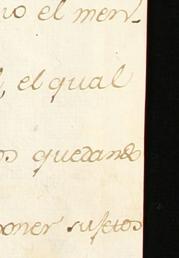 el men-
el qual
quedando
poner sujetos